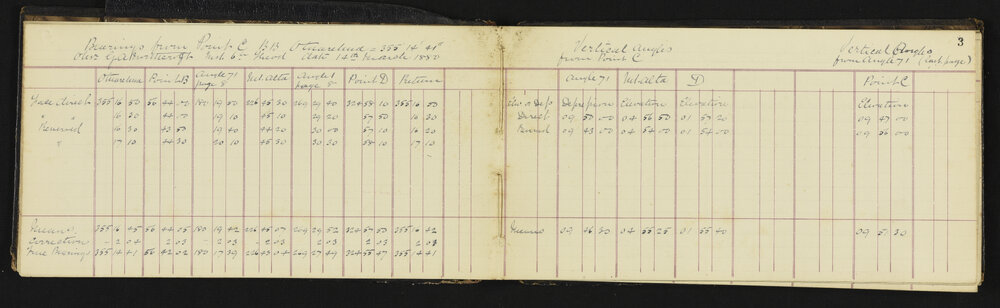 Bearings from Point C BB Otuarelua = 355° 14' 41"
Obsr G.A. Inst 6in Theod date 14th March 1880
Otuarelua Point B Angle 71 page 8 Mt Alta Angle 1 page 8 Point D Return
Face Direct 355 16 50 56 44 00 180 19 50 226 45 30 209 29 40 324 58 10 355 16 50
" 16 30 44 00 19 10 45 10 29 20 57 50 16 30
Reversed 16 30 43 50 19 40 44 20 30 00 57 10 16 20
" 17 10 44 30 20 10 45 30 30 30 58 10 17 10
Means 355 16 45 56 44 05 180 19 42 226 45 07 209 29 52 324 57 50 355 16 42
Correction - 2 04 2 03 - 2 03 - 2 03 2 03 2 03 2 03
True Bearings 355 14 41 56 42 02 180 17 39 226 43 04 209 27 49 324 55 47 355 14 41
Vertical Angles
from Point C
Angle 71 Mt Alta D
Elevn or Depn Depression Elevation Elevation
Direct 09 50 00 04 56 50 01 57 20
09 43 00 04 54 00 01 54 00
Means 09 46 30 04 55 25 01 55 40
3
Vertical Angles
from Angle 71 (last page)
Point C
Elevation
09 47 00
09 56 00
09 51 30